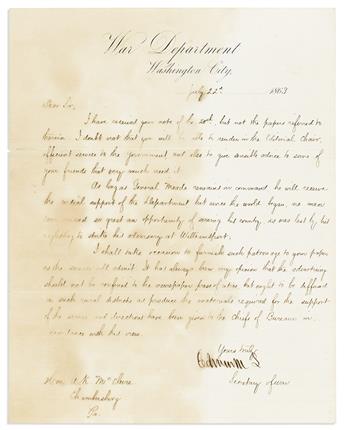 War Department
Washington City.
July 22d. 1863
Dear Sir,
I have received your note of the 20th, but not the papers referred to
therein. I doubt not that you will be able to render in the Editorial Chair,
efficient service to the Government and also to give sensible advice to some of
your friends that very much need it.
As long as General Meade remains in command he will receive
the cordial support of the Department but since the world began, no man
ever missed so great an opportunity of serving his country, as was lost by his
neglecting to strike his adversary at Williamsport.
I shall take occasion to furnish such patronage to your paper
as the service will admit. It has always been my opinion that the advertising
should not be confined to the newspaper press of cities but ought to be diffused
in such rural districts as produce the materials required for the support
of the service and directions have been given to the Chiefs of Bureaus in
accordance with this view.
Yours truly
Edwin M S
Secretary of War
Hon. A. K. McClure
Chambersburg
Pa.